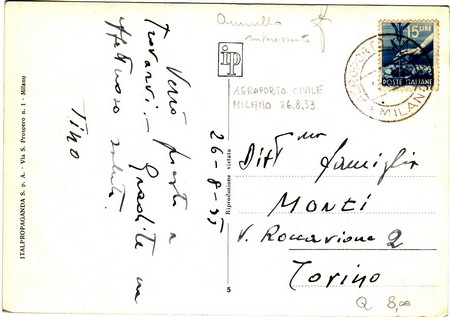 Verrò presto a
trovarvi. – Gradite un
affettuoso saluto.
Tino
26-8-53
ITALPROPAGANDA S. p. A. - Via S. Prospero n. 1 - Milano
Riproduzione vietata
5
ip
Annullo
AEROPORTO CIVILE
MILANO 26.8.53
15 LIRE
POSTE ITALIANE
MILANO
famiglia
MONTI
V. Roccavione 2
Torino
Q 8,00